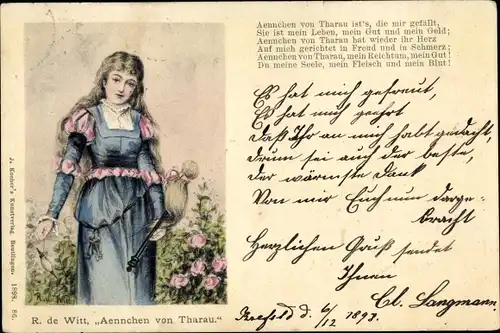 Aennchen von Tharau ist's, die mir gefällt,
Sie ist mein Leben, mein Gut und mein Geld;
Aennchen von Tharau hat wieder ihr Herz
Auf mich gerichtet in Freud und in Schmerz;
Aennchen von Tharau, mein Reichtum, mein Gut!
Du meine Seele, mein Fleisch und mein Blut!
Es hat mich gefreut,
Es hat mich geehrt
daß Ihr an mich habt gedacht,
drum sei auch der beste,
der wärmste Dank
Von mir Euch nun darge-
bracht
Herzlichen Gruß sendet
Ihnen
Cl. Langmann
Crefeld d. 6/12 1897.
R. de Witt, „Aennchen von Tharau."
J. Kocher's Kunstverlag Reutlingen. 1898. 86.